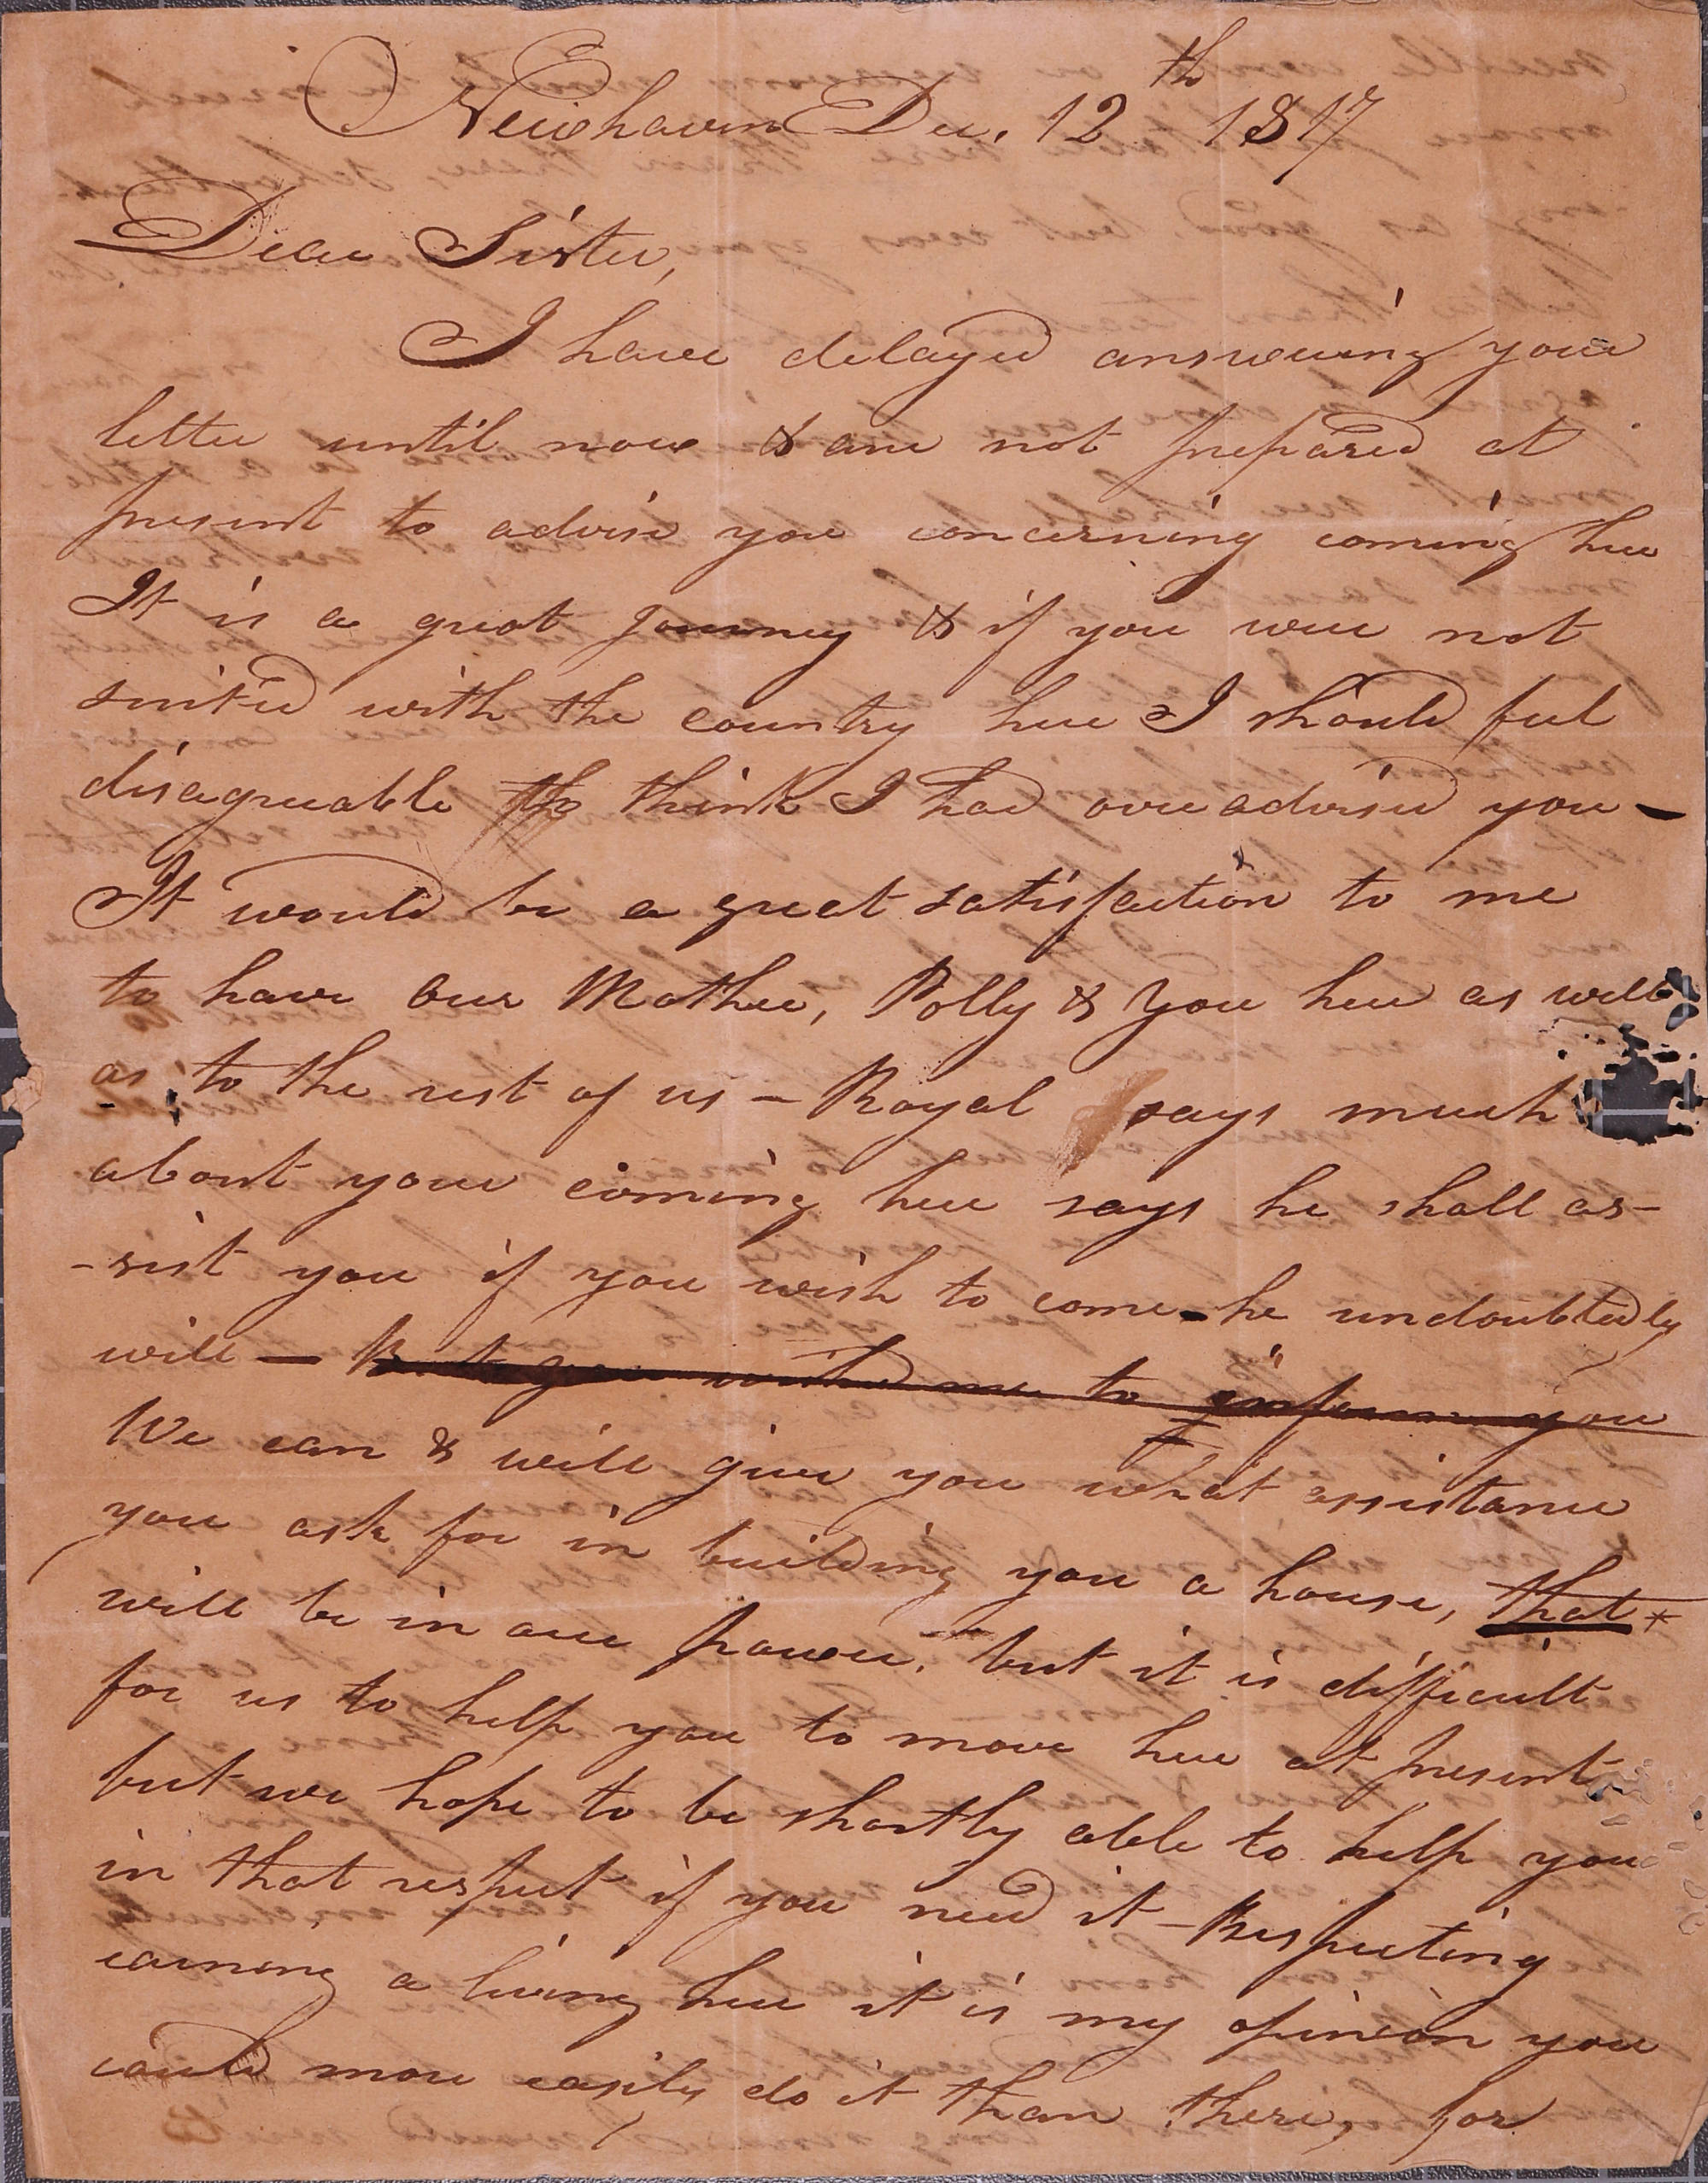 Newhaven Dec. 12th 1817
Dear Sister,
I have delayed answering your
letter until now & am not prepared at
present to advise you concerning coming here
It is a great journey & if you were not
suited with the country here I should feel
disagreeable to think I had over advised you -
It would be a great satisfaction to me
to have our Mother, Polly & You here as well
as to the rest of us - Royal says much
about your coming here says he shall as-
-sist you if you wish to come - he undoubtedly
will - But you wished me to inform you
We can & will give you what assistance
you ask for in building you a house, that
will be in our power. but it is difficult
for us to help you to move here at present
but we hope to be shortly able to help you
in that respect if you need it - Respecting
earning a living here it is my opinion you
could more easily do it than there, for